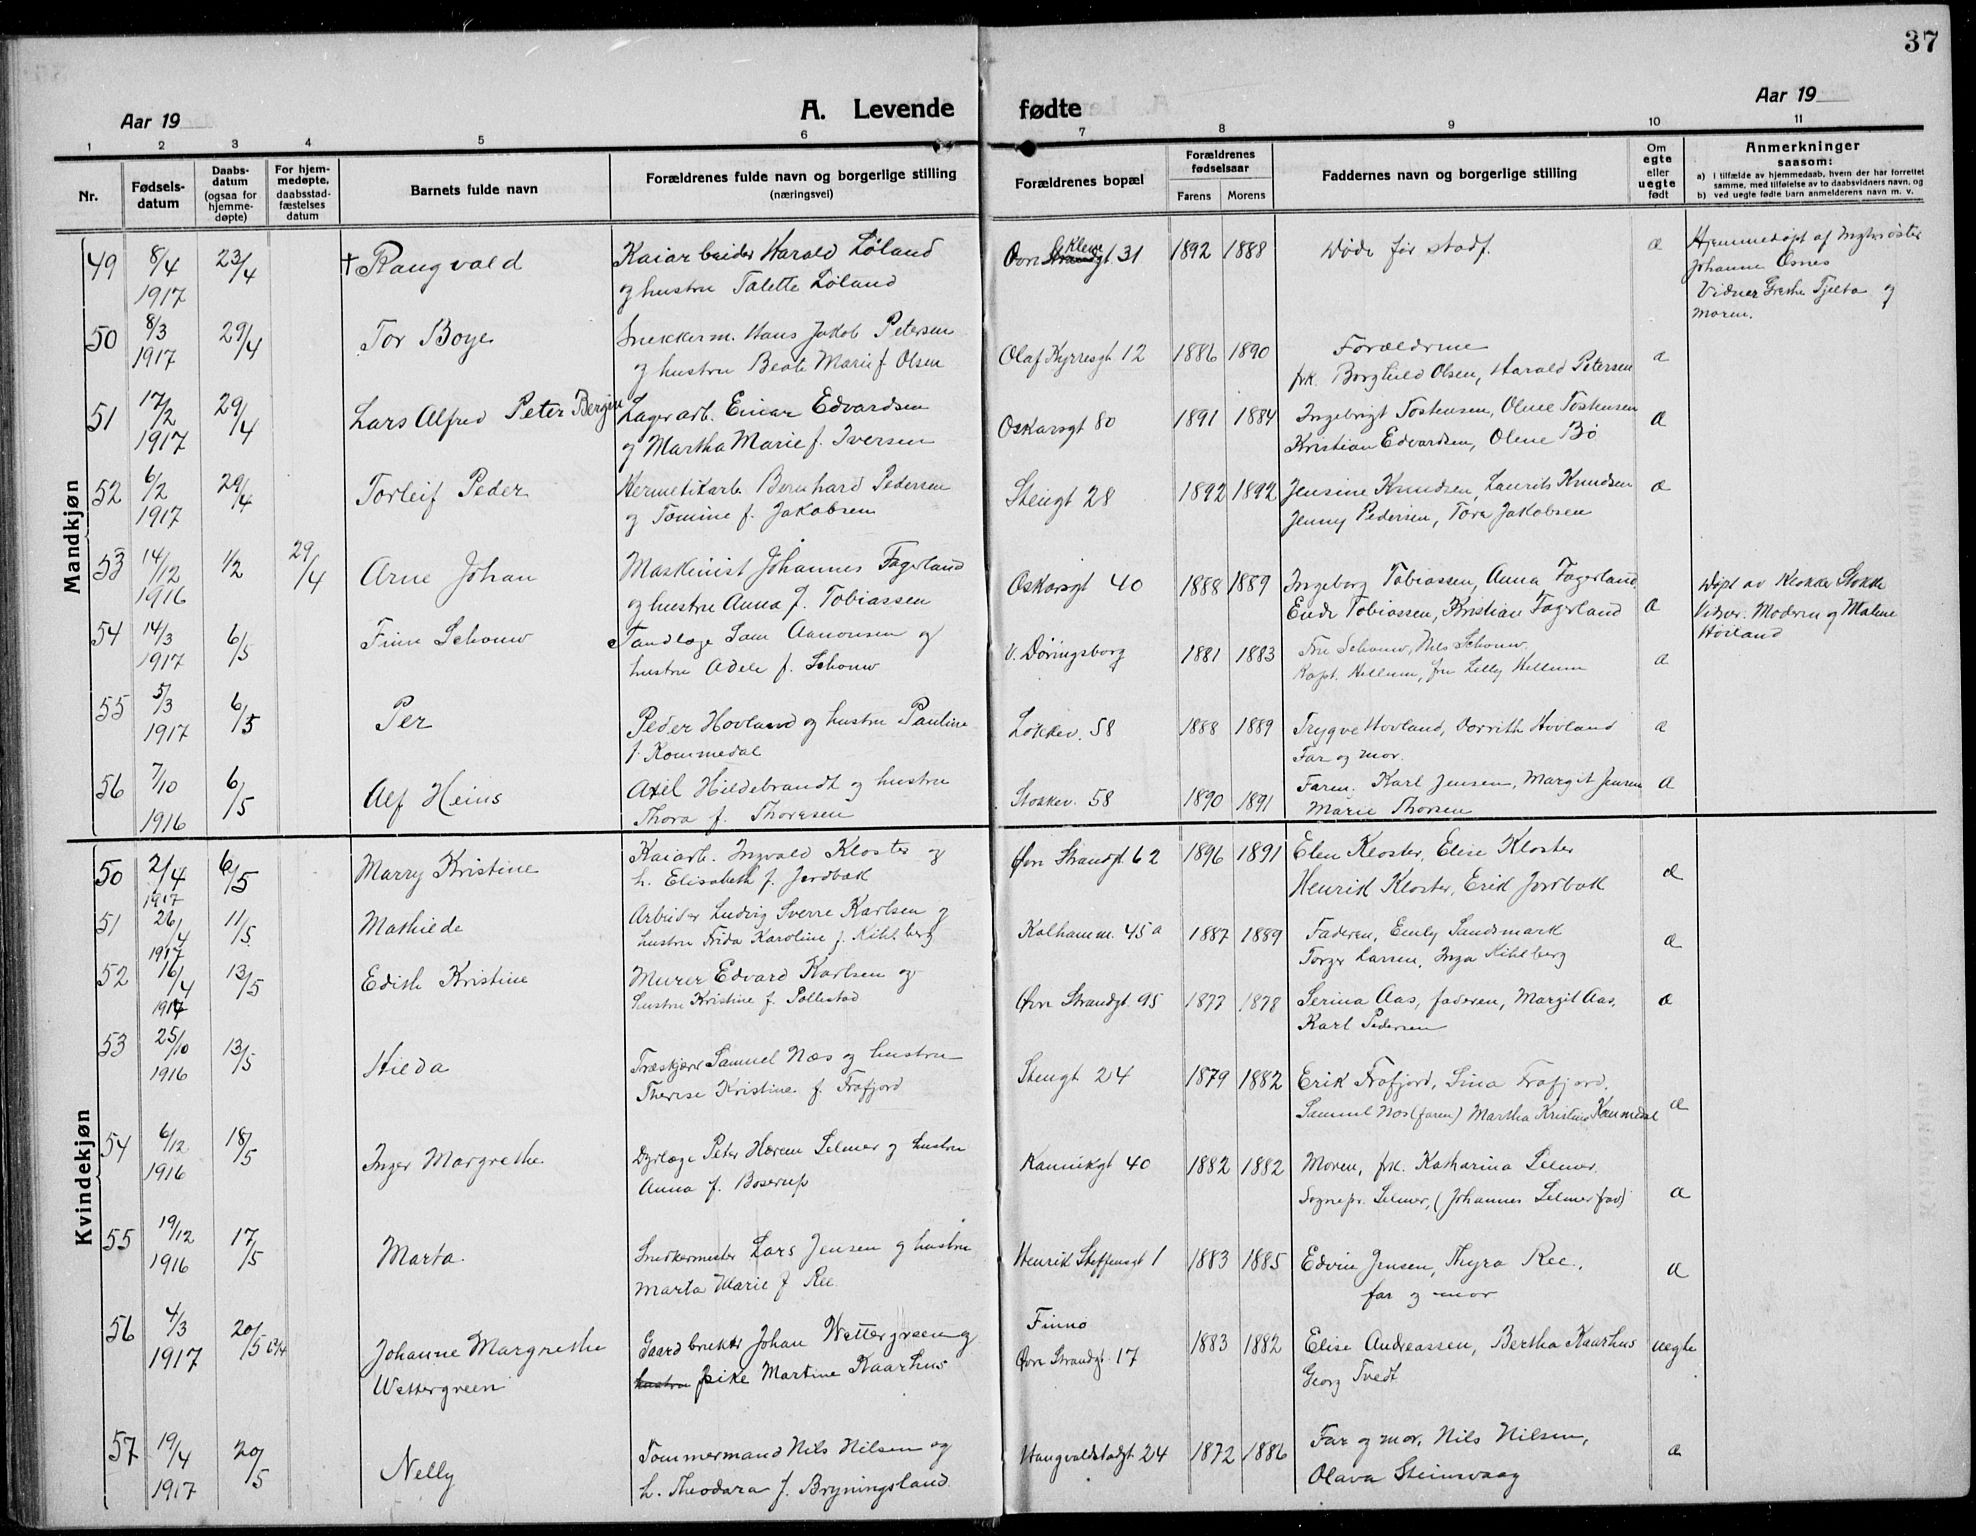 37
A. Levende fødte
Aar 19
Aar 19
1 2 3 4 5 6 7 8 9 10 11
Nr.
Fødsels-
datum
Daabs-
datum
(ogsaa for
hjemme-
døpte)
For hjem-
medøpte,
daabsstad-
fæstelses
datum
Barnets fulde navn
Forældrenes fulde navn og borgerlige stilling
(næringsvei)
Forældrenes bopæl
Forældrenes
fødselsaar
Farens Morens
Faddernes navn og borgerlige stilling
Om
egte
eller
uegte
født
Anmerkninger
saasom:
a) i tilfælde av hjemmedaab, hvem der har forrettet
samme, med tilføielse av to daabsvidners navn, og
b) ved uegte fødte barn anmelderens navn m. v.
Mandkjøn
49 8/4 1917 23/4 † Rangvald
Kaiarbeider Harald Løland
og hustru Talette Løland
Øvre Kleve gt 31 1892 1888 Døde før stadf. æ
Hjemmedøpt af
Johanne Osnes
Vidner Grethe Tjelta og
Moren.
50 8/3 1917 29/4 Tor Boye
Snekkerm. Hans Jakob Petersen
og hustru Beate Marie f. Olsen
Olaf Kyrresgt 12 1886 1890
Forældrene
frk. Borghild Olsen, Harald Petersen æ
51 17/2 1917 29/4 Lars Alfred Peter Berger
Lagerarb. Einar Edvardsen
og Martha Marie f. Iversen
Oskarsgt 80 1891 1884
Ingebrigt Tostensen, Olene Tostensen
Kristian Edvardsen, Olene Bø æ
52 6/2 1917 29/4 Torleif Peder
Hermetikarb. Bernhard Pedersen
og Tomine f. Jakobsen
Stengt 28 1892 1892
Jensine Knudsen, Laurits Knudsen
Jenny Pedersen, Tora Jakobsen æ
53 14/12 1916 1/2 29/4 Arne Johan
Maskinist Johannes Fagerland
og hustru Anna f. Tobiassen
Oskarsgt 40 1888 1889
Ingeborg Tobiassen, Anna Fagerland,
Endr Tobiassen, Kristian Fagerland æ
Døpt av Klokker Stokke
Vidner. Moderen og Malene
Høiland
54 14/3 1917 6/5 Finn Schouw
Tandlæge Sam Aanonsen og
hustru Adele f. Schouw
v. Døringsborg 1881 1883
Fru Schouw, Nils Schouw,
Kapt. Hellum, fru Lilly Hellum æ
55 5/3 1917 6/5 Per
Peder Hovland og hustru Pauline
f. Kommedal
Løkkev. 58 1888 1889
Trygve Hovland, Dorrith Hovland
Far og mor. æ
56 7/10 1916 6/5 Alf Heins
Axel Hildebrandt og hustru
Thora f. Thoresen
Stokkev. 58 1890 1891
Faren, Karl Jensen, Margit Jensen
Marie Thorsen æ
Kvindekjøn
50 2/4 1917 6/5 Marry Kristine
Kaiarb. Ingvald Kloster og
h. Elisabeth f. Jordbak
Øvre Strandgt. 62 1896 1891
Elen Kloster, Elise Kloster
Henrik Kloster, Erik Jordbak æ
51 26/4 1917 11/5 Mathilde
Arbeider Ludvig Sverre Karlsen og
hustru Frida Karoline f. Kihlberg
Kalhamm. 45a 1887 1889
Faderen, Emly Sandsmark
Torger Larsen, Inga Kihlberg æ
52 16/4 1917 13/5 Edith Kristine
Murer Edvard Karlsen og
hustru Kristine f. Pollestad
Øvre Strandgt. 95 1877 1878
Serina Aas, faderen, Margit Aas,
Karl Pedersen æ
53 25/10 1916 13/5 Hilda
Træskjærer Samuel Næs og hustru
Therese Kristine f. Frafjord
Stengt 24 1879 1882
Erik Frafjord, Sina Frafjord,
Samuel Næs (faren) Martha Kristine Kommedal æ
54 6/12 1916 18/5 Inger Margrethe
Dyrlæge Peter Hærem Selmer og hustru
Anna f. Boserup
Kannikgt 40 1882 1882
Moren, frk. Katharina Selmer.
Sognepr. Selmer, (Johannes Selmer far) æ
55 19/12 1916 17/5 Marta.
Snedkermester Lars Jensen og hustru
Marta Marie f. Ree
Henrik Steffensgt 1 1883 1885
Edvin Jensen, Thyra Ree,
far og mor æ
56 4/3 1917 20/5 Johanne Margrethe
Wettergreen
Gaardbruker Johan Wettergreen og
hustru pike Martine Kaarhus
Finnø
Øvre Strandgt. 17 1883 1882
Elise Andreassen, Bertha Kaarhus
Georg Tvedt. uegte
57 19/4 1917 20/5 Nelly
Tømmermand Nils Nilsen og
h. Theodora f. Bryningsland
Haugvaldstadgt 24 1872 1886
Far og mor, Nils Nilsen,
Olava Steinsvaag æ